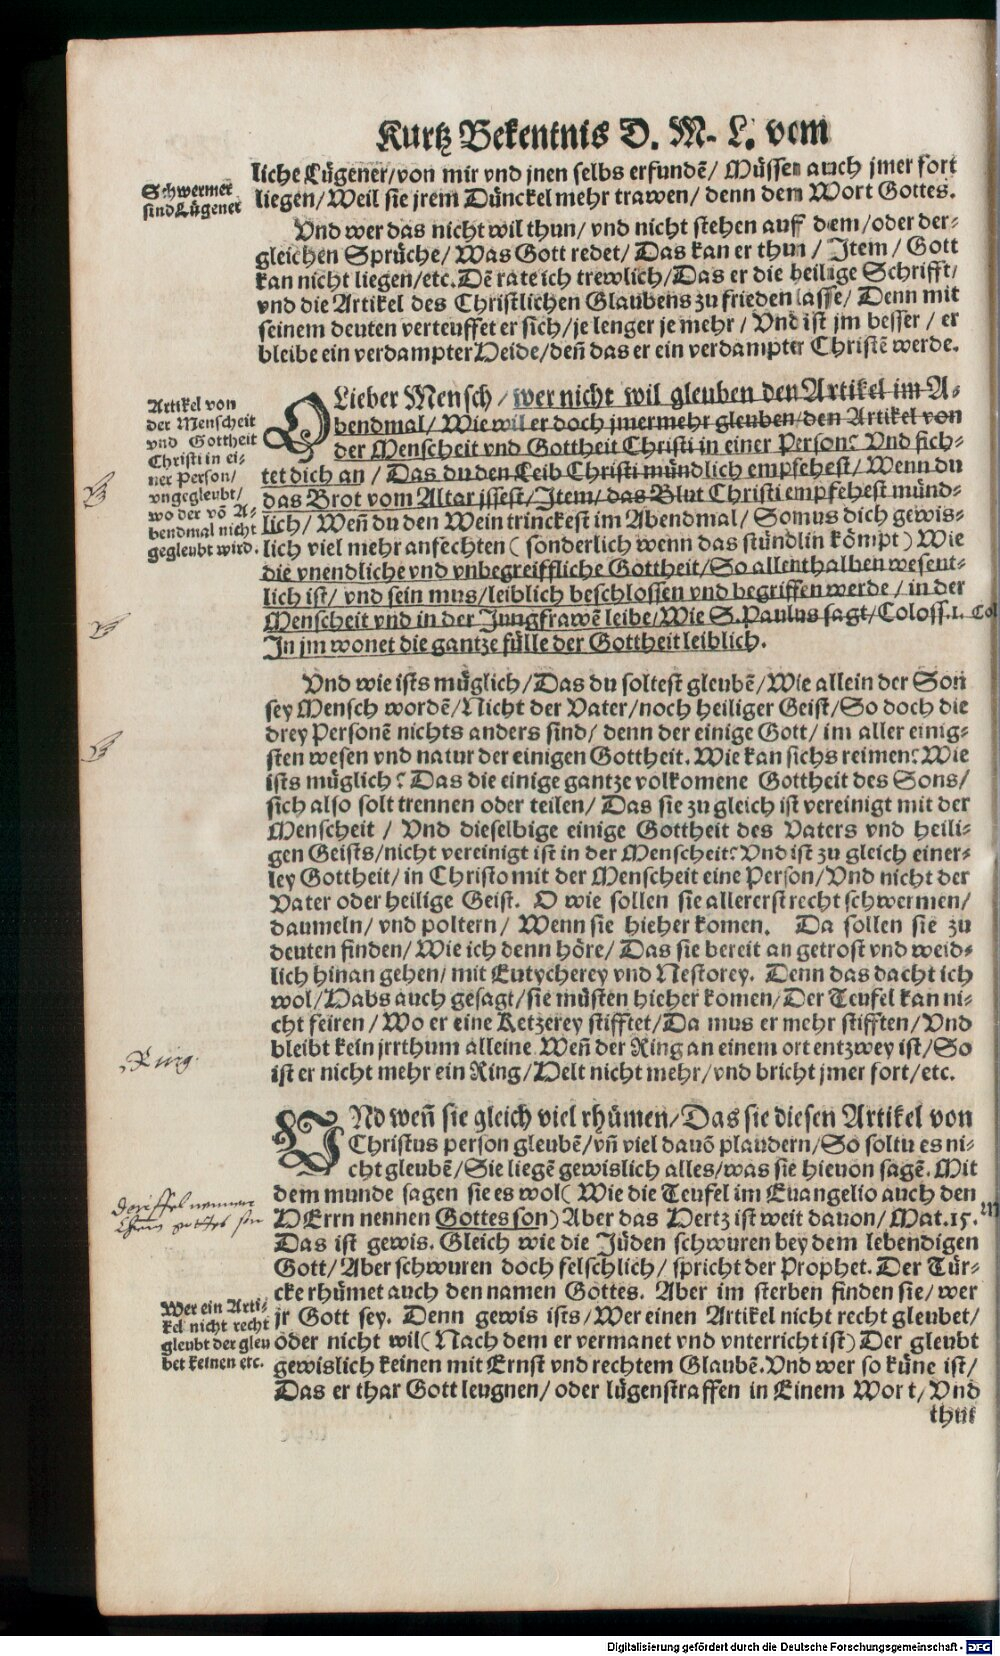 Kurtz Bekentnis D. M. L. vom
liche Lügener/von mir vnd jnen selbs erfundē/Müssen auch jmer fort
liegen/Weil sie jrem Dünckel mehr trawen/denn dem Wort Gottes.
Schwermer
sind Lügener
Vnd wer das nicht wil thun/vnd nicht stehen auff dem/oder der=
gleichen Sprüche/Was Gott redet/Das kan er thun/Item/Gott
kan nicht liegen/etc. Dē rate ich trewlich/Das er die heilige Schrifft/
vnd die Artikel des Christlichen Glaubens zu frieden lasse/Denn mit
seinem deuten verteuffet er sich/je lenger je mehr/Vnd ist jm besser/er
bleibe ein verdampter Heide/deñ das er ein verdampter Christē werde.
Artikel von
der Menscheit
vnd Gottheit
Christi in ei=
ner Person/
vngegleubt/
wo der vō A=
bendmal nicht
gegleubt wird.
O Lieber Mensch/wer nicht wil gleuben den Artikel im A=
bendmal/Wie wil er doch jmermehr gleuben/den Artikel von
der Menscheit vnd Gottheit Christi in einer Person? Vnd fich=
tet dich an/Das du den Leib Christi mündlich empfehest/Wenn du
das Brot vom Altar issest/Item/das Blut Christi empfehest münd=
lich/Weñ du den Wein trinckest im Abendmal/So mus dich gewis=
lich viel mehr anfechten (sonderlich wenn das stündlin kömpt) Wie
die vnendliche vnd vnbegreiffliche Gottheit/So allenthalben wesent=
lich ist/vnd sein mus/leiblich beschlossen vnd begriffen werde/in der
Menscheit vnd in der Jungfrawē leibe/Wie S. Paulus sagt/Coloss. 1. Col
In jm wonet die gantze fülle der Gottheit leiblich.
Vnd wie ists müglich/Das du soltest gleubē/Wie allein der Son
sey Mensch wordē/Nicht der Vater/noch heiliger Geist/So doch die
drey Personē nichts anders sind/denn der einige Gott/im aller einig=
sten wesen vnd natur der einigen Gottheit. Wie kan sichs reimen? Wie
ists müglich? Das die einige gantze volkomene Gottheit des Sons/
sich also solt trennen oder teilen/Das sie zu gleich ist vereinigt mit der
Menscheit/Vnd dieselbige einige Gottheit des Vaters vnd heili=
gen Geists/nicht vereinigt ist in der Menscheit? Vnd ist zu gleich einer=
ley Gottheit/in Christo mit der Menscheit eine Person/Vnd nicht der
Vater oder heilige Geist. O wie sollen sie allererst recht schwermen/
daumeln/vnd poltern/Wenn sie hieher komen. Da sollen sie zu
deuten finden/Wie ich denn höre/Das sie bereit an getrost vnd weid=
lich hinan gehen/mit Eutycherey vnd Nestorey. Denn das dacht ich
wol/Habs auch gesagt/sie müsten hieher komen/Der Teufel kan ni=
cht feiren/Wo er eine Ketzerey stifftet/Da mus er mehr stifften/Vnd
bleibt kein jrrthum alleine. Weñ der Ring an einem ort entzwey ist/So
ist er nicht mehr ein Ring/Helt nicht mehr/vnd bricht jmer fort/etc.
Ring.
VNd weñ sie gleich viel rhümen/Das sie diesen Artikel von
Christus person gleubē/vñ viel dauō plaudern/So soltu es ni=
cht gleubē/Sie liegē gewislich alles/was sie hieuon sagē. Mit
dem munde sagen sie es wol (Wie die Teufel im Euangelio auch den
HErrn nennen Gottes son) Aber das Hertz ist weit dauon/Mat. 15. M
Das ist gewis. Gleich wie die Jüden schwuren bey dem lebendigen
Gott/Aber schwuren doch felschlich/spricht der Prophet. Der Tür=
cke rhümet auch den namen Gottes. Aber im sterben finden sie/wer
jr Gott sey. Denn gewis ists/Wer einen Artikel nicht recht gleubet/
oder nicht wil (Nach dem er vermanet vnd vnterricht ist) Der gleubt
gewislich keinen mit Ernst vnd rechtem Glaubē. Vnd wer so küne ist/
Das er thar Gott leugnen/oder lügenstraffen in Einem Wort/Vnd
thut
Wer ein Arti=
kel nicht recht
gleubt der gleu
bet keinen etc.
Digitalisierung gefördert durch die Deutsche Forschungsgemeinschaft - DFG